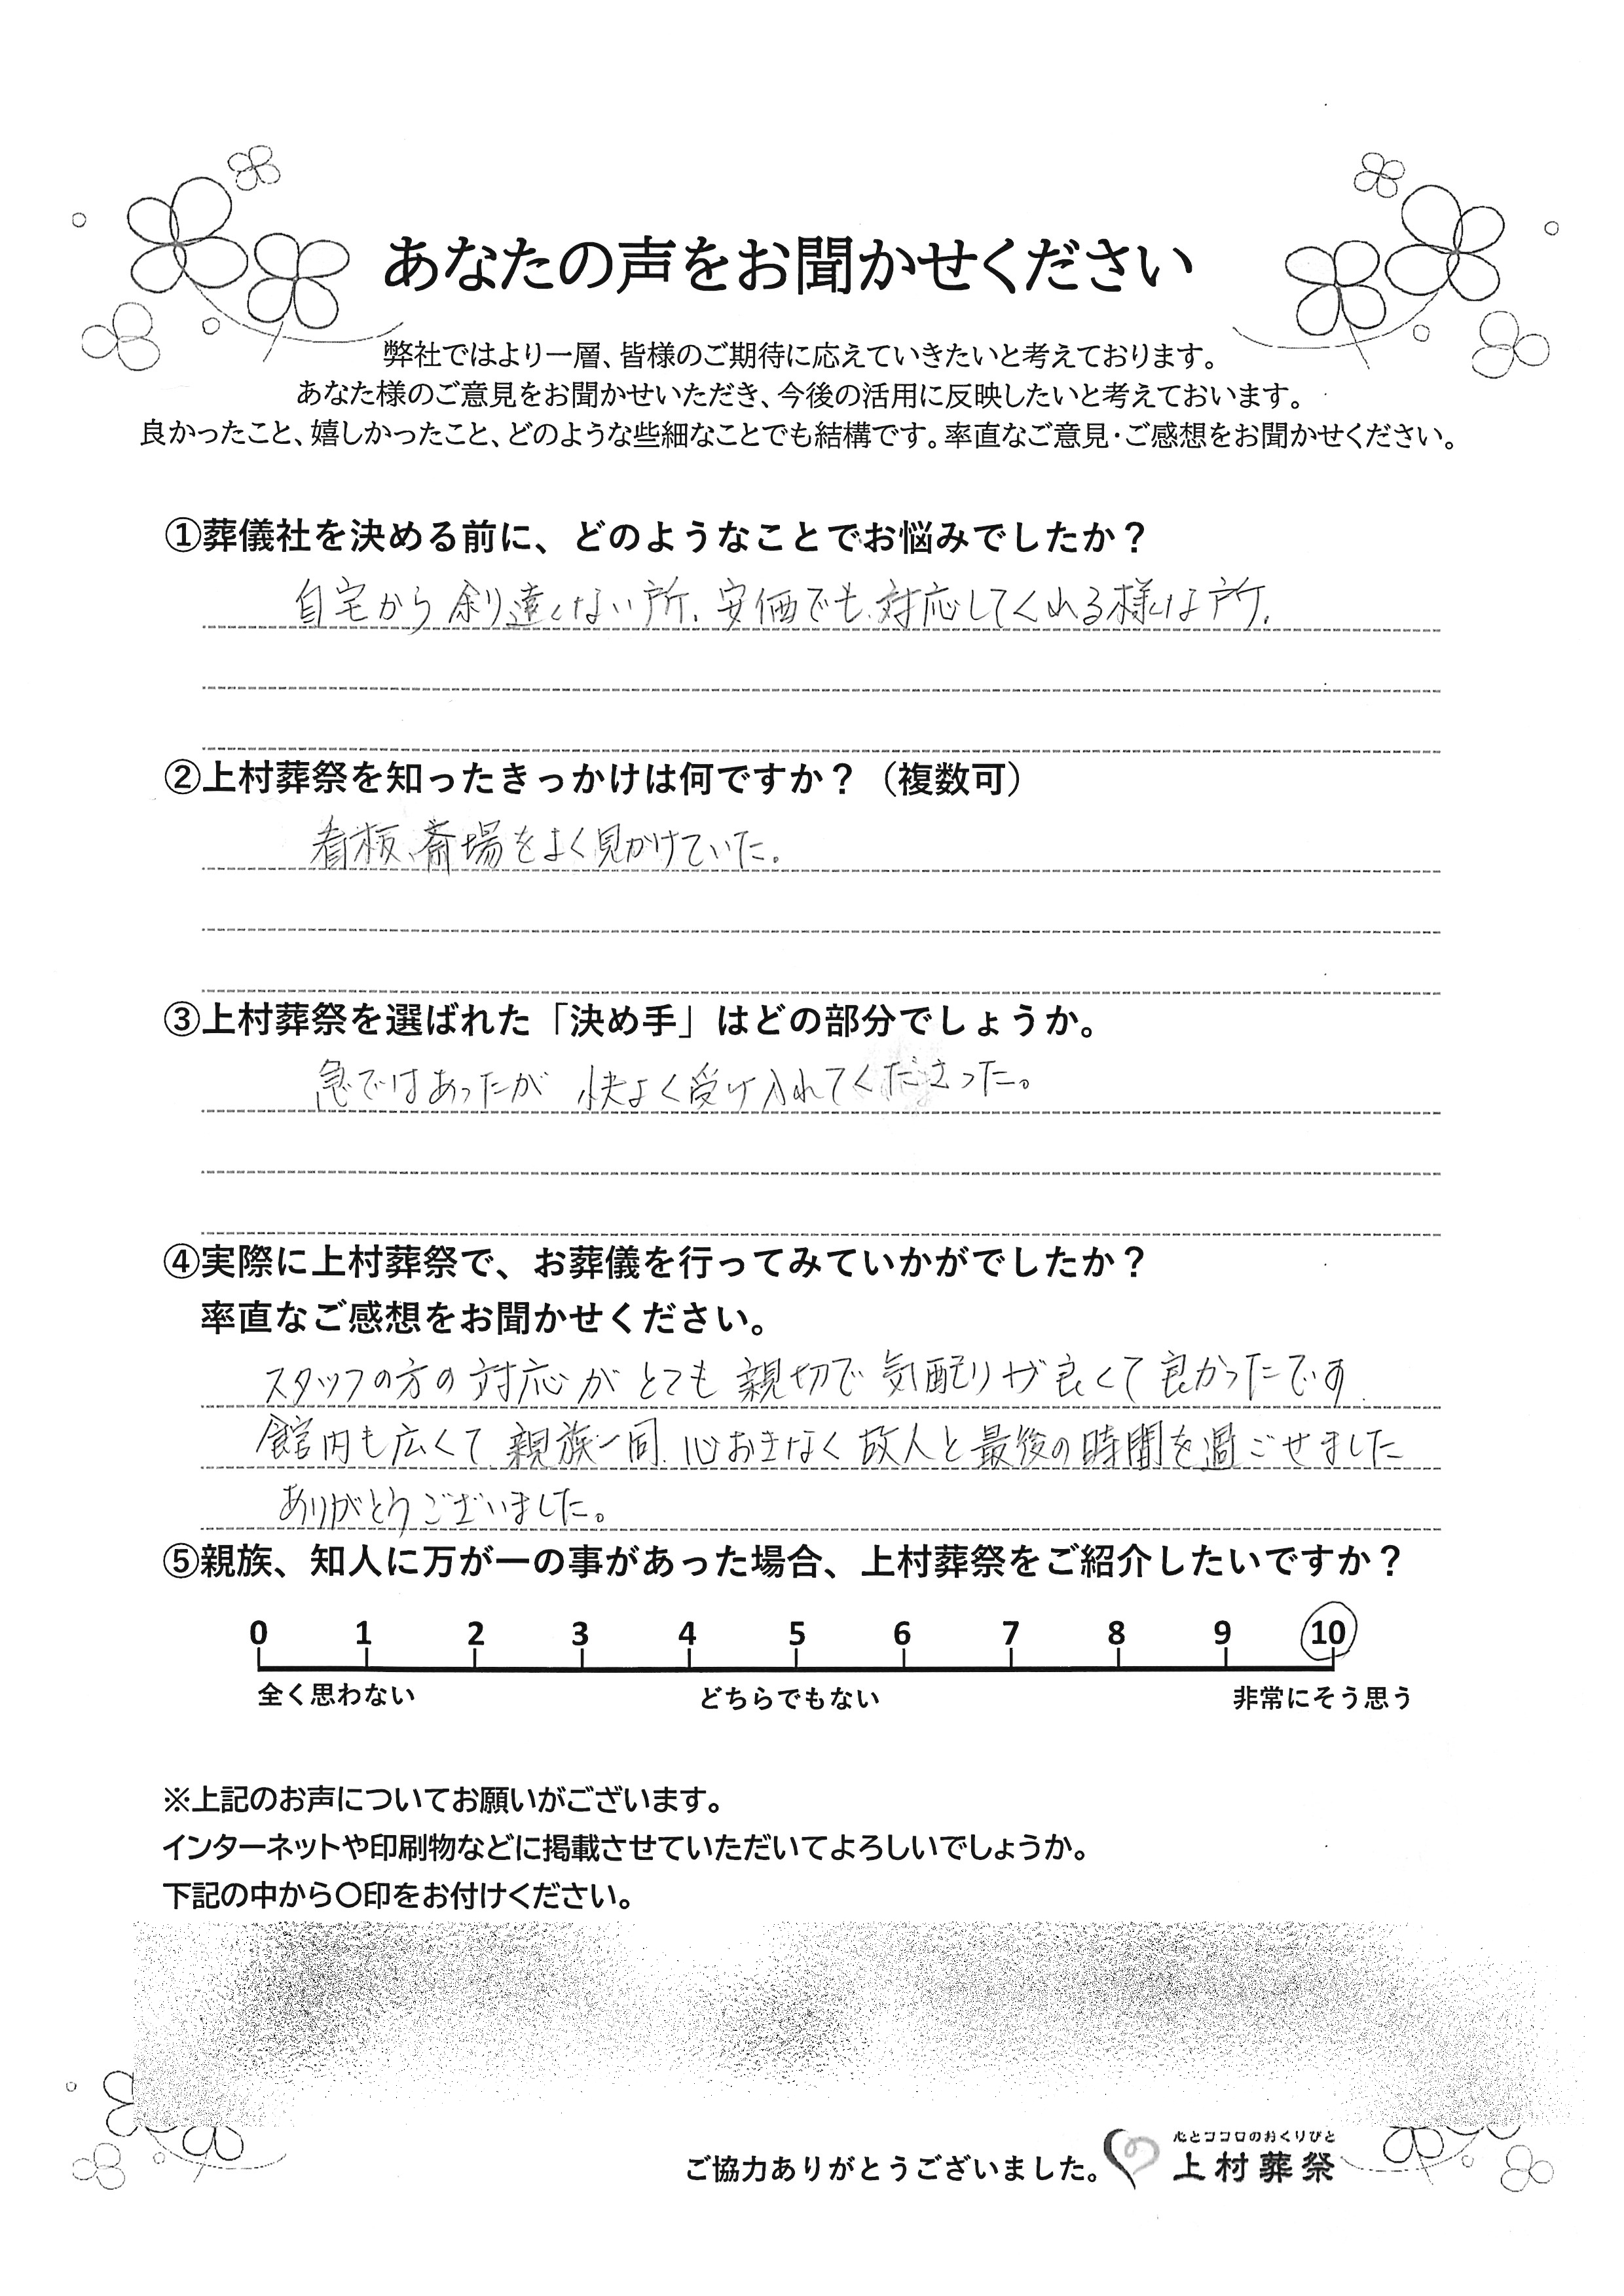 あなたの声をお聞かせください
弊社ではより一層、皆様のご期待に応えていきたいと考えております。
あなた様のご意見をお聞かせいただき、今後の活用に反映したいと考えておいます。
良かったこと、嬉しかったこと、どのような些細なことでも結構です。率直なご意見・ご感想をお聞かせください。
①葬儀社を決める前に、どのようなことでお悩みでしたか？
自宅から余り遠くない所、安価でも対応してくれる様な所。
②上村葬祭を知ったきっかけは何ですか？（複数可）
看板、斎場をよく見かけていた。
③上村葬祭を選ばれた「決め手」はどの部分でしょうか。
急ではあったが 快よく受け入れてくださった。
④実際に上村葬祭で、お葬儀を行ってみていかがでしたか？
率直なご感想をお聞かせください。
スタッフの方の対応がとても親切で気配りが良くて良かったです。
館内も広くて、親族一同、心おきなく故人と最後の時間を過ごせました
ありがとうございました。
⑤親族、知人に万が一の事があった場合、上村葬祭をご紹介したいですか？
0 1 2 3 4 5 6 7 8 9 10
全く思わない どちらでもない 非常にそう思う
※上記のお声についてお願いがございます。
インターネットや印刷物などに掲載させていただいてよろしいでしょうか。
下記の中から〇印をお付けください。
心とココロのおくりびと
ご協力ありがとうございました。 上村葬祭